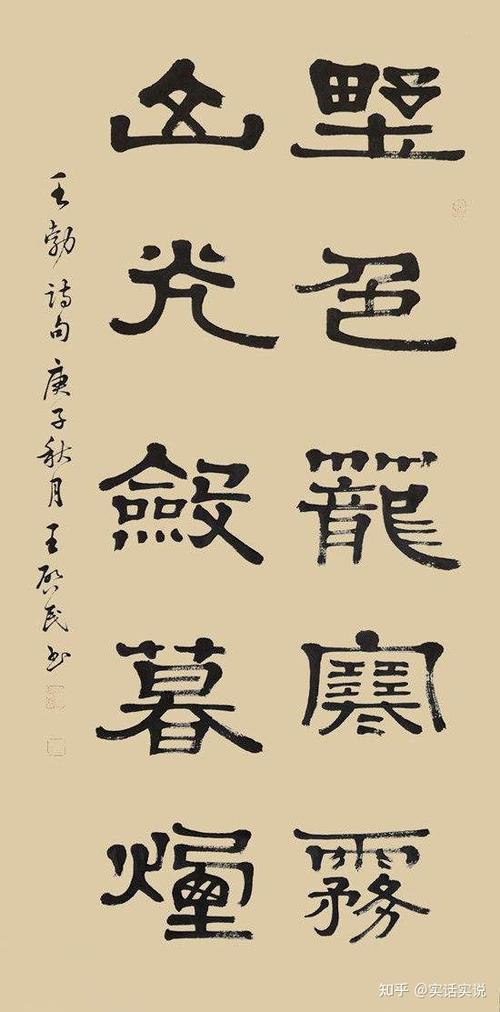 野色籠寒霧
山光斂暮煙
王勃诗句庚子秋月王啟民书
知乎 @实话实说